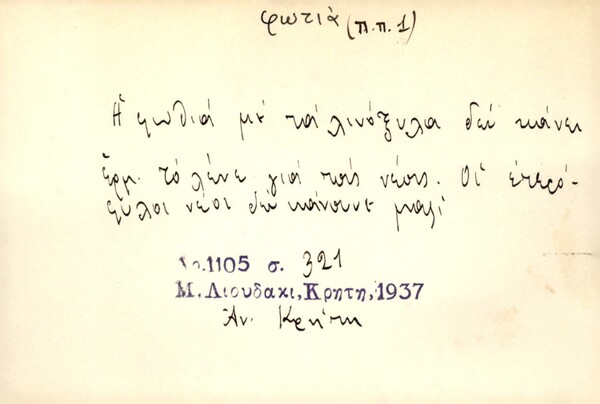 φωτιὰ (π.π. 1)
Ἡ φωθιὰ μὲ τὰ λινόξυλα δὲν κάνει
Ἑρμ. τὸ λένε γιὰ τοὺς νέους. Οἱ ἑτερό-
φυλοι νέοι δὲν κάνουνε μαζί
Ἀρ. 1105 σ. 321
Μ. Λιουδακι, Κρητη, 1937
Ἀν. Κρήτη